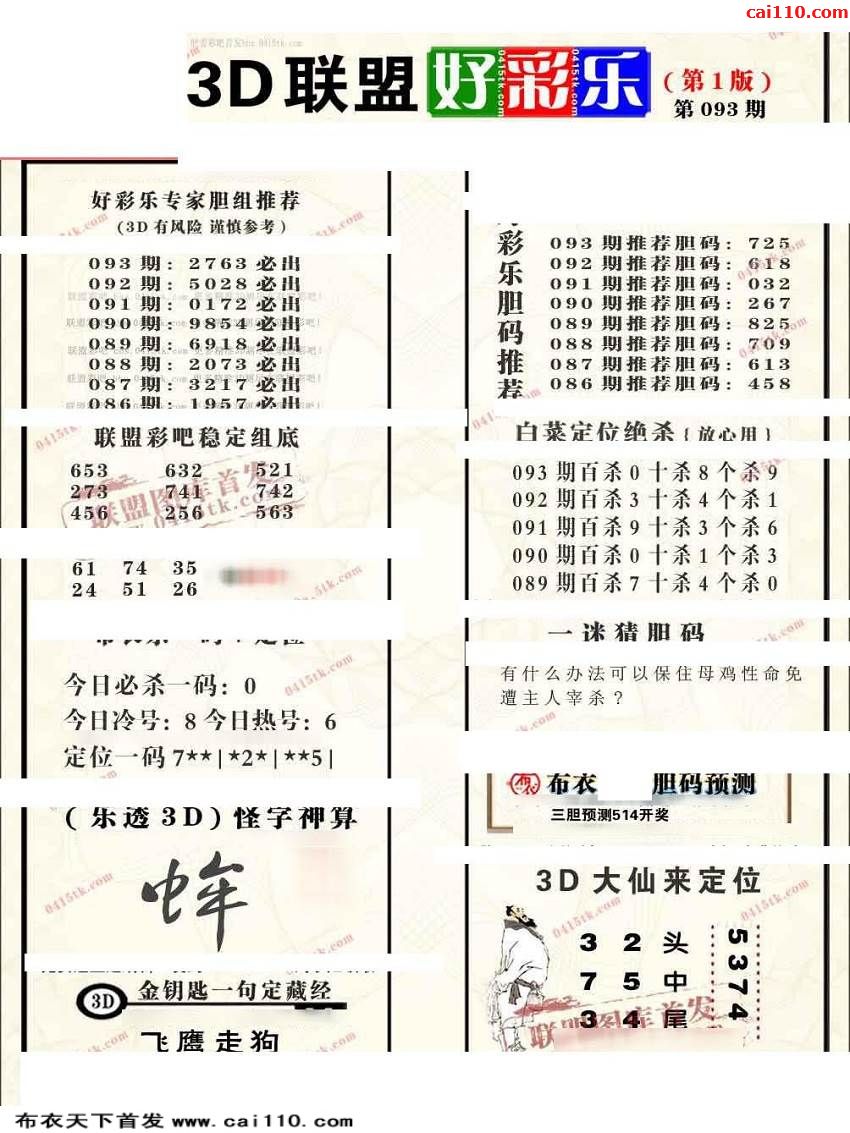 cai110.com
3D联盟好彩乐（第1版）
第093期
好彩乐专家胆组推荐
（3D有风险 谨慎参考）
093期：2763必出
092期：5028必出
091期：0172必出
090期：9854必出
089期：6918必出
088期：2073必出
087期：3217必出
086期：1957必出
联盟彩吧稳定组底
653 632 521
273 741 742
456 256 563
61 74 35
24 51 26
今日必杀一码：0
今日冷号：8 今日热号：6
定位一码 7**|*2*|**5|
（乐透3D）怪字神算
3D 金钥匙一句定藏经
飞鹰走狗
彩乐胆码推荐
093期推荐胆码：725
092期推荐胆码：618
091期推荐胆码：032
090期推荐胆码：267
089期推荐胆码：825
088期推荐胆码：709
087期推荐胆码：613
086期推荐胆码：458
白菜定位绝杀{放心用}
093期百杀0十杀8个杀9
092期百杀3十杀4个杀1
091期百杀9十杀3个杀6
090期百杀0十杀1个杀3
089期百杀7十杀4个杀0
一迷猜胆码
有什么办法可以保住母鸡性命免
遭主人宰杀？
布衣 胆码预测
三胆预测514开奖
3D大仙来定位
3 2 头
7 5 中
3 4 尾
5374
联盟图库首发
0415tk.com
布衣天下首发 www.cai110.com